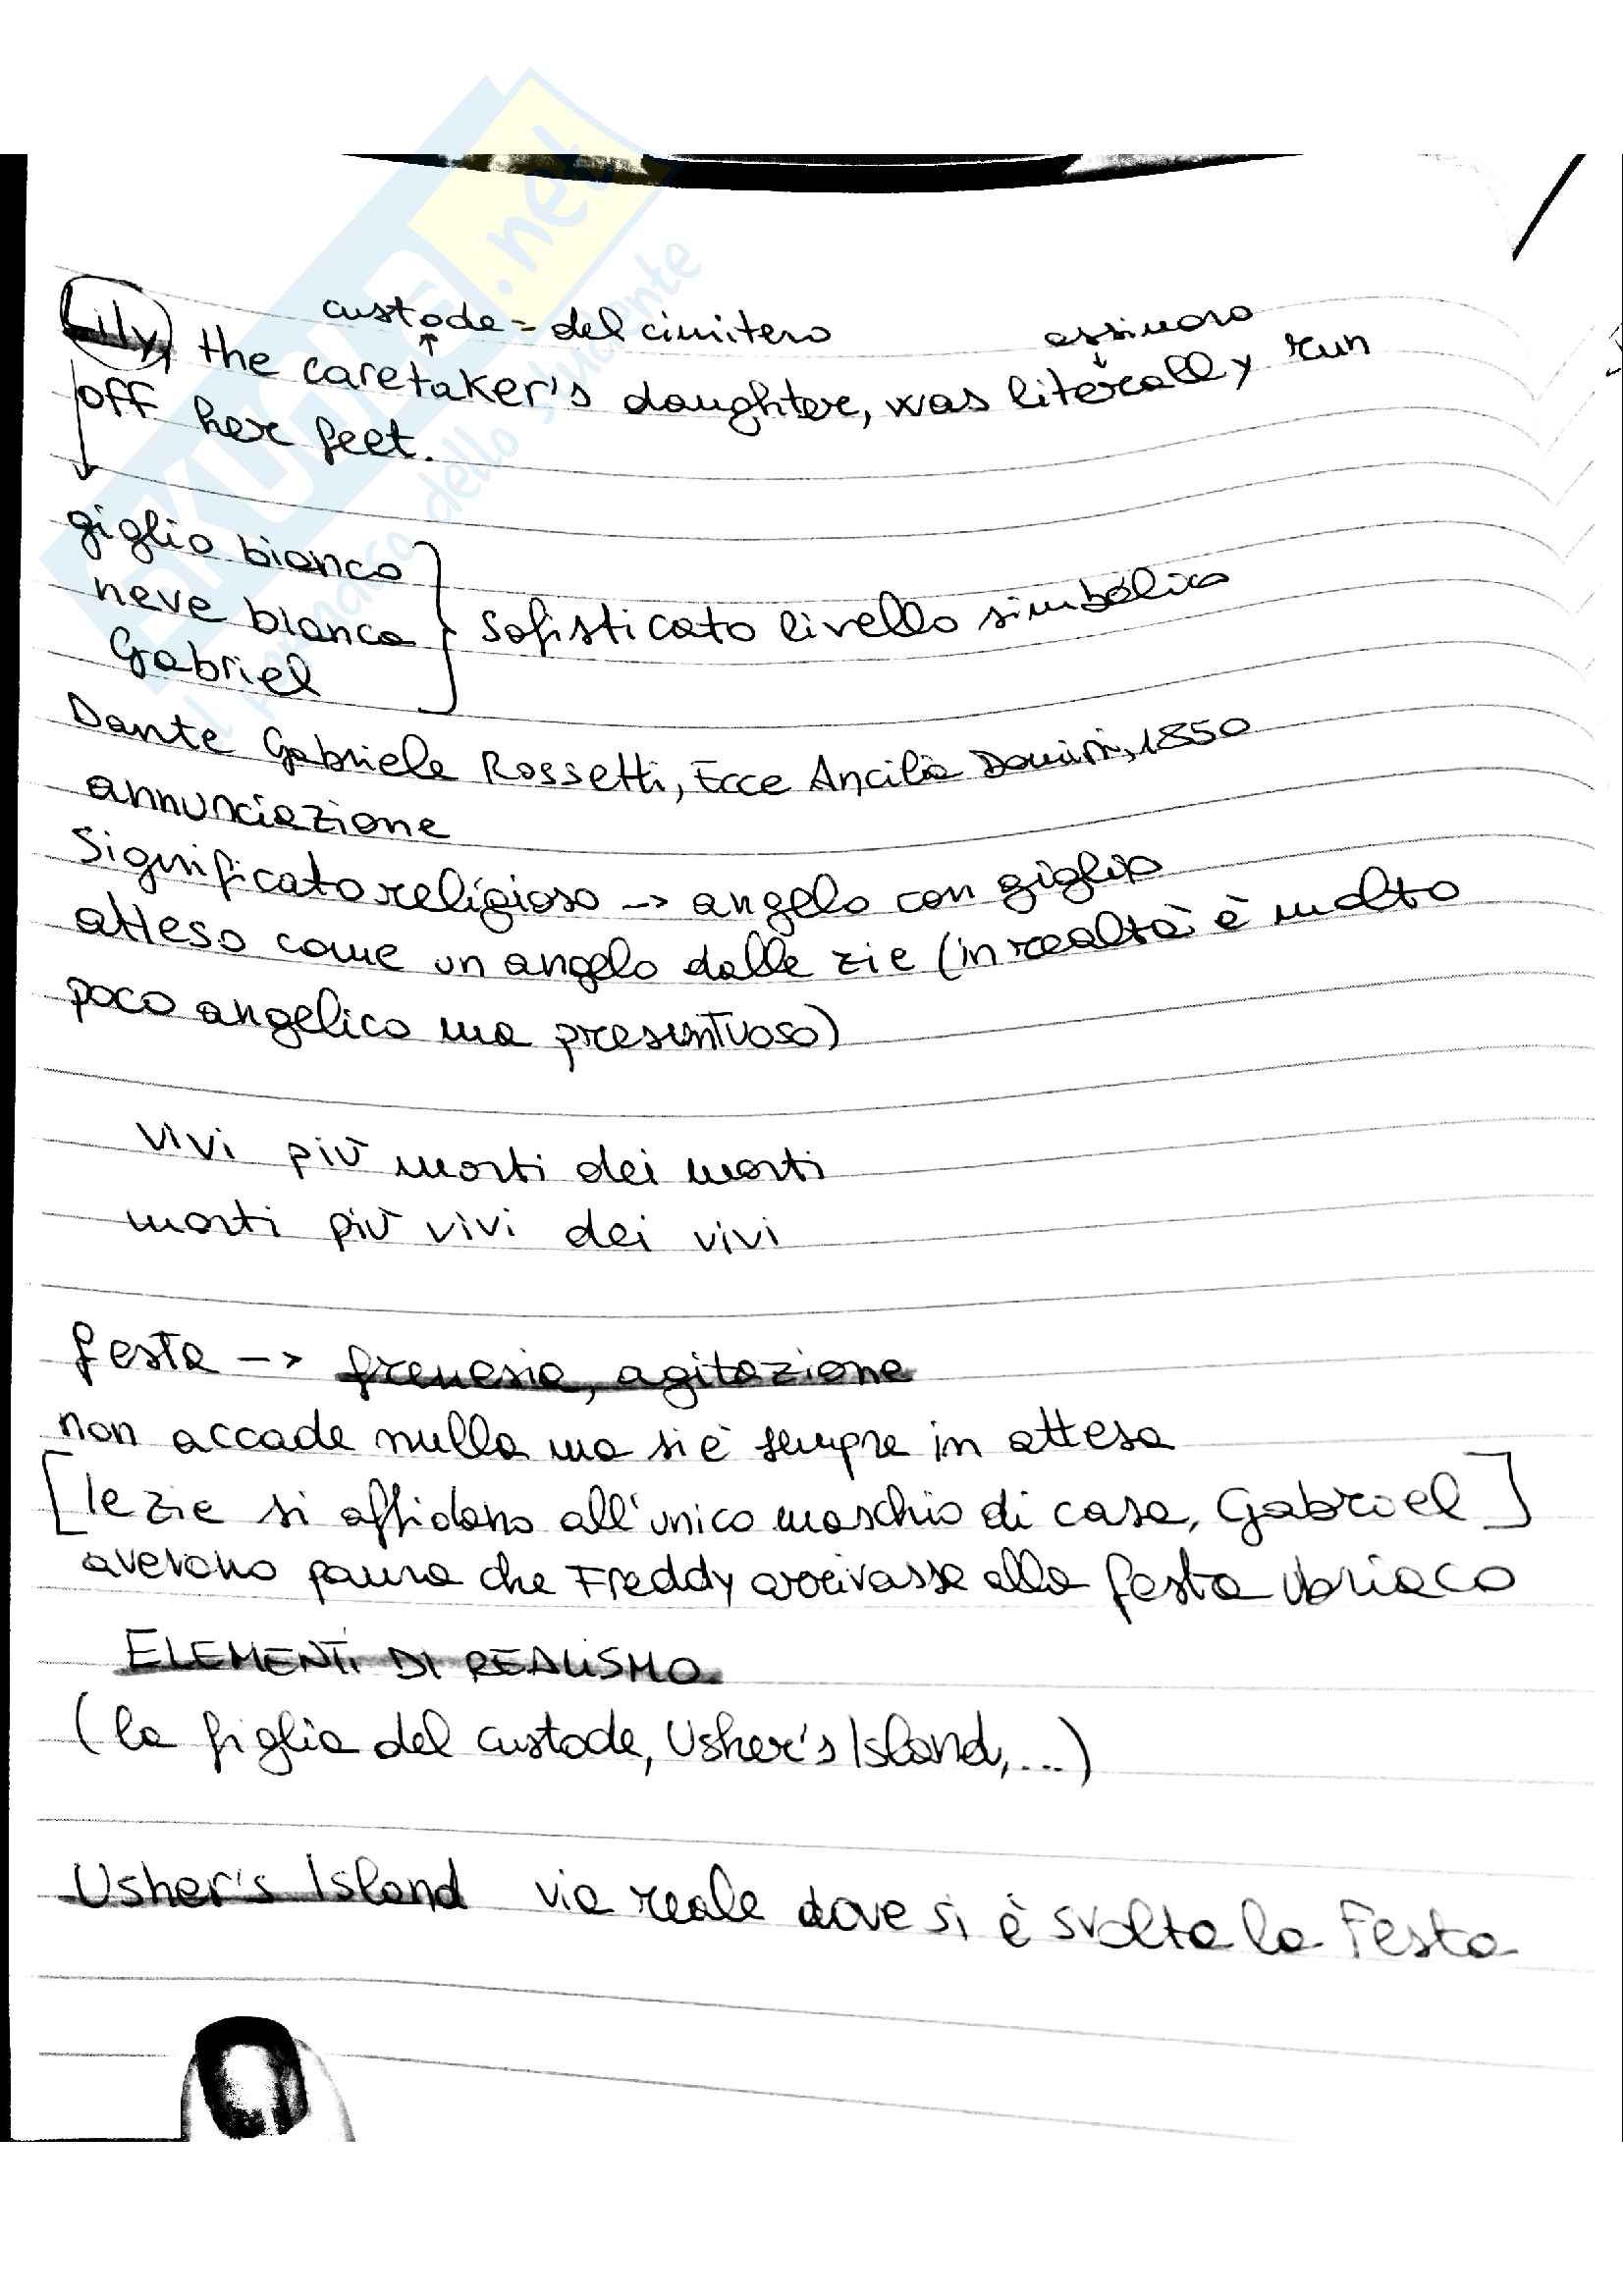 custode = del cimitero
ossimoro
Lily, the caretaker's daughter, was literally run
off her feet.
giglio bianco
neve bianca
Gabriel
Sofisticato livello simbolico
Dante Gabriele Rossetti, Ecce Ancilia Domini, 1850
annunciazione
Significato religioso -> angelo con giglio
atteso come un angelo dalle zie (in realtà è molto
poco angelico ma presuntuoso)
vivi più morti dei morti
morti più vivi dei vivi
festa -> frenesia, agitazione
non accade nulla ma si è sempre in attesa
[le zie si affidano all'unico maschio di casa, Gabriel]
avevano paura che Freddy arrivasse alla festa ubriaco
ELEMENTI DI REALISMO
(la figlia del custode, Usher's Island, ...)
Usher's Island via reale dove si è svolta la festa
SKUOLA.net
il paradiso dello studente